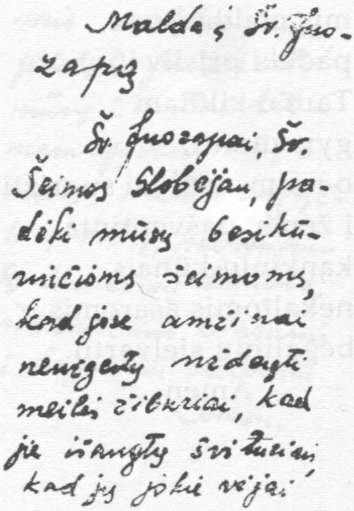 Malda į Šv. Juo-
zapą
Šv. Juozapai, Šv.
Šeimos Globėjau, pa-
dėki mūsų besikū-
riančioms šeimoms,
kad jose amžinai
neužgestų uždegti
meilės žiburiai, kad
jie išaugtų švituriais,
kad jų jokie vėjai